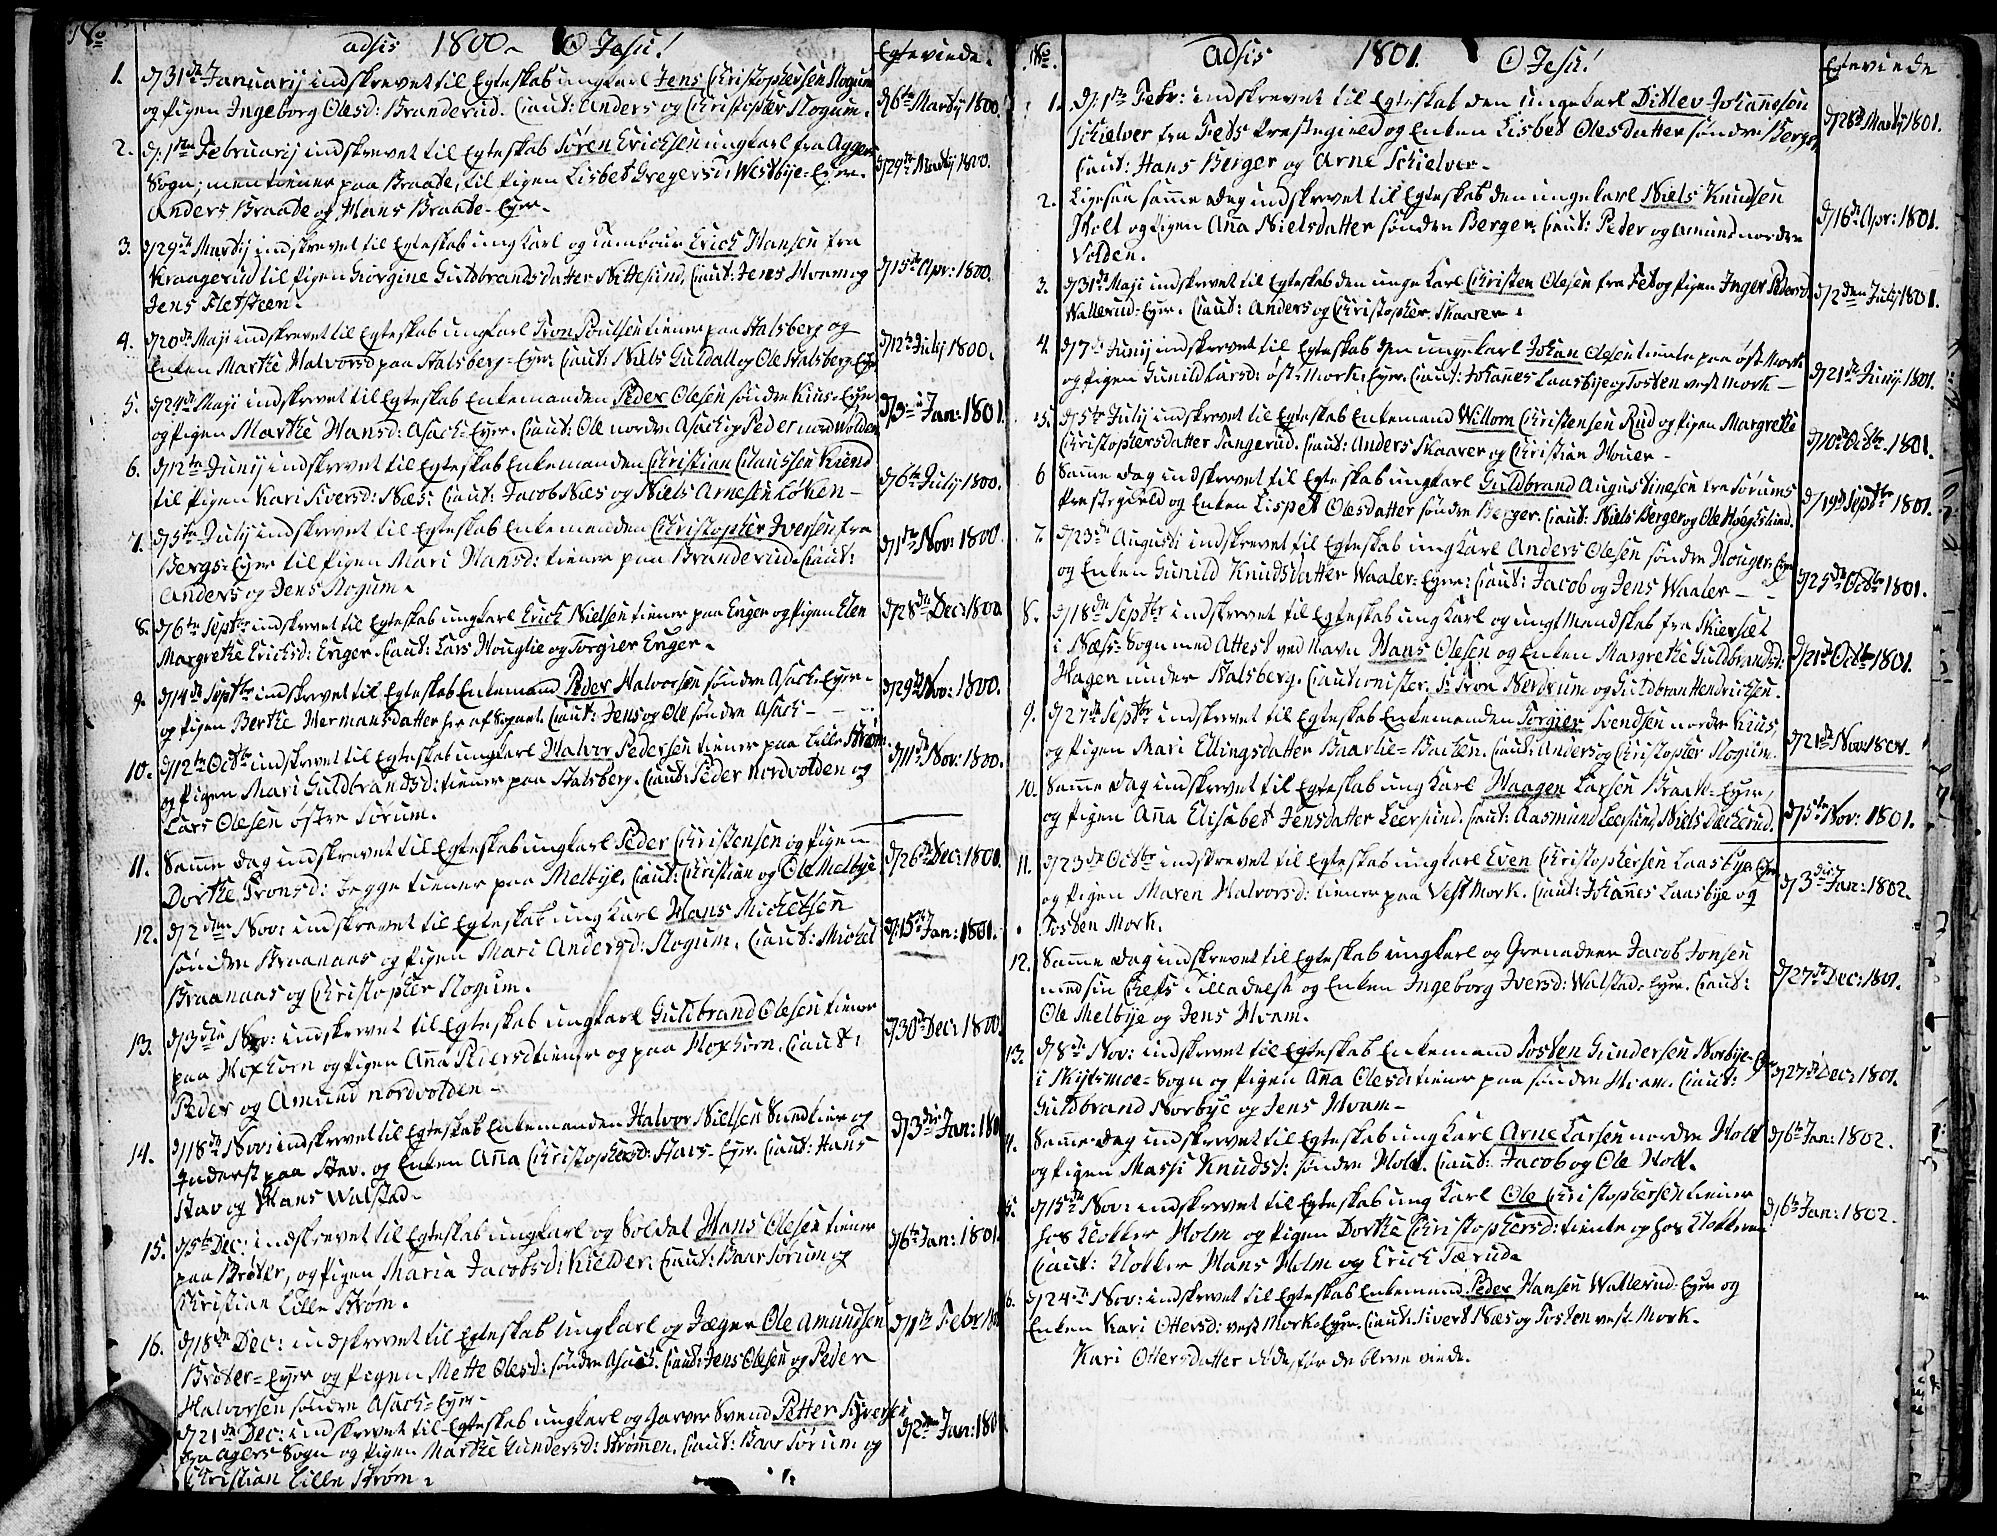 No adsis 1800 O Jesu! Egtevinde.
1. d 31te Januarij indskrevet til Egteskab ungkarl Jens Christophersen Slogum
og Pigen Ingeborg Olesd: Branderud. Caut: Anders og Christopher Slogum. d 6te Martij 1800.
2. d. 1ste Februarij indskrevet til Egteskab Søren Erichsen ungkarl fra Aggers
Sogn; men tiener paa Braate, til Pigen Lisbet Gregersd: Westbye-Eyer. d 29de Martij 1800.
Anders Braate og Hans Braate-Eyer.
3. d 29de Martij indskrevet til Egteskab ungkarl og Tambour Erich Hansen fra
Kraagerud til Pigen Giorgine Guldbrandsdatter Nittesund, Caut: Jens Hvam og d 15de Apr: 1800.
Jens Fletsteen.
4. d 20de Maji indskrevet til Egteskab ungkarl Tron Poulsen tiener paa Stalsberg og
Enken Marthe Halvorsd paa Stalsberg-Eyer. Caut: Niels Guldall og Ole Stalsberg-Eyer d 12te Julij 1800.
5. d 24de Maji indskrevet til Egteskab Enkemanden Peder Olesen søndre Kius-Eyer
og Pigen Marthe Hansd: Asach-Eyer. Caut: Ole nordre Asach og Peder nordWolden d 9de Jan: 1801
6. d 12te Junij indskrevet til Egteskab Enkemanden Christian Claussen Rud
til Pigen Kari Siversd: Næs: Caut: Jacob Næs og Niels Arnesen Løken d 6te Julij 1800.
7. d 5te Julij indskrevet til Egteskab Enkemanden Christopher Iversen fra
Bergs-Eyer til Pigen Mari Hansd: tiener paa Branderud. Caut: d 1ste Nov: 1800
Anders og Jens Slogum.
8. d 6te Septbr indskrevet til Egteskab ungkarl Erich Nielsen tiener paa Enger og Pigen Elen d 28de Dec: 1800
Margrethe Erichsd: Enger. Caut: Lars Houglie og Torgier Enger.
9. d 14de Septbr indskrevet til Egteskab Enkemand Peder Halvorsen søndre Asach-Eyer d 29de Nov: 1800.
og Pigen Berthe Hermansdatter her af Sognet. Caut: Jens og Ole søndre Asach
10. d 12te Octbr indskrevet til Egteskab ungkarl Halvor Pedersen tiener paa Lille Strøm
og Pigen Mari Guldbrandsd: tiener paa Stalsberg. Caut: Peder Nordvolden og d 11te Nov: 1800.
Lars Olesen østre Sørum.
11. Samme dag indskrevet til Egteskab ungkarl Peder Christensen og Pigen
Dorthe Tronsd: begge tiener paa Melbye. Caut: Christian og Ole Melbye d 26de Dec: 1800.
12. d 2den Nov: indskrevet til Egteskab ungkarl Hans Michelsen
søndre Braanaas og Pigen Mari Andersd: Slogum. Caut: Michel d: 15de Jan: 1801.
Braanaas og Christopher Slogum.
13. d 3die Nov: indskrevet til Egteskab ungkarl Guldbrand Olesen tiener
paa Hoxhorn og Pigen Anna Pedersd tiener og paa Hoxhorn. Caut: d 30te Dec: 1800
Peder og Amund nordvolden
14. d 18de Nov: indskrevet til Egteskab Enkemanden Halvor Nielsen
Inderst paa Stav. og Enken Anna Christophersd: Stavs-Eyer. Caut: Hans d 3die Jan: 180
Stav og Hans Walstad.
15. d 5te Dec: indskrevet til Egteskab ungkarl og Soldat Hans Olesen tiener
paa Brøter, og Pigen Maria Jacobsd: Kielder. Caut: Baar Sørum og d 6te Jan: 1801.
Christian Lille Strøm.
16. d 18de Dec: indskrevet til Egteskab ungkarl og Jæger Ole Amundsen
Brøter-Eyer og Pigen Mette Olesd: søndre Asach. Caut: Jens Olesen og Peder d 1ste Febr 18
Halvorsen søndre Asach-Eyer
d 21de Dec: indskrevet til Egteskab ungkarl og Garver Svend Petter Syversen
fra Agers Sogn og Pigen Marthe Gundersd: Strømmen. Caut: Baar Sørum og d 2den Jan: 180
Christian Lille Strøm.
No. Adsis 1801. O Jesu! Egtevinde
1. d: 1ste Febr: indskrevet til Egteskab den unge karl Ditlev Johannesen
Schielver fra Fets Prestegield og Enken Lisbet Olesdatter søndre Berger, d 28de Martij 1801.
Caut: Hans Berger og Arne Schielver.
2. Ligesaa samme dag indskrevet til Egteskab den unge karl Niels Knudsen
Holt og Pigen Anna Nielsdatter søndre Berger. Caut: Peder og Amund nordre d 16de Apr: 1801.
Volden.
3. d 31te Maji indskrevet til Egteskab den unge karl Christen Olesen fra Fet og Pigen Inger Pedersd
Wallerud-Eyer. Caut: Anders og Christopher Skaarer. d 2den Julij 1801.
4. d 7de Junij indskrevet til Egteskab den unge karl Johan Olesen tiente paa øst-Mork
og Pigen Gunild Larsd: øst-Mork-Eyer. Caut: Johannes Laasbye og Tosten vest mork d 21de Junij 1801.
5. d 5te Julij indskrevet til Egteskab Enkemand Willom Christensen Rud og Pigen Margrethe
Christophersdatter Tangerud. Caut: Anders Skaarer og Christian Houer d 10de Octbr 1801.
6 Samme dag indskrevet til Egteskab ungkarl Guldbrand Augustinesen fra Sørums
Prestegield og Enken Lispet Olesdatter søndre Berger. Caut: Niels Berger og Ole d 19de Septbr 1801.
7. d 23de Augusti indskrevet til Egteskab ungkarl Anders Olesen søndre Houger-Eyer
og Enken Gunild Knudsdatter Waaler-Eyer: Caut: Jacob og Jens Waaler d 25de Octbr 1801.
8. d 18de Septbr indskrevet til Egteskab ungkarl og ungt Mandskab fra Skiersæt
i Næss-Sogn med Attest ved Navn Hans Olesen og Enken Margrethe Guldbrandsd: d 21de Octbr 1801.
Hagen under Stalsberg. Cautionister Sr Tron Nerdrum og Guldbran Hendrichsen.
9. d 27de Septbr indskrevet til Egteskab Enkemanden Torgier Svendsen nordre Kius,
og Pigen Mari Ellingsdatter Buarlie-Bachen. Caut: Anders og Christopher Slogum. d 21de Nov 1801.
10. Samme dag indskrevet til Egteskab ungkarl Haagen Larsen Braate-Eyer,
og Pigen Anna Elisabet Jensdatter Leersund. Caut: Aasmund Leersund, Niels d 5te Nov: 1801.
11. d 23de Octbr indskrevet til Egteskab ungkarl Even Christophersen Laasbye-Eyer
og Pigen Maren Halvorsd: tiener paa Vest Mork. Caut: Johannes Laasbye og d 3die Jan: 1802.
Tosten Mork.
12. Samme dag indskrevet til Egteskab ungkarl og Grenadeer Jacob Jonsen
med sin Chefs Tilladelse og Enken Ingeborg Iversd: Walstad-Eyer. Caut: d 27de Dec: 1801.
Ole Melbye og Jens Hvam.
13. d 8de Nov: indskrevet til Egteskab Enkemand Tosten Gundersen Norbye-Eyer
i Skydsmoe-Sogn og Pigen Anna Olesd: tiener paa søndre Hvam. Caut: d 27de Dec: 1801.
Guldbrand Norbye og Jens Hvam
4. Samme dag indskrevet til Egteskab ungkarl Arne Larsen nordre Holt d 6te Jan: 1802.
og Pigen Massi Knudsd: søndre Holt. Caut: Jacob og Ole Holt.
5. d 15de Nov: indskrevet til Egteskab ungkarl Ole Christophersen tiener
hos Klokker Holm og Pigen Dorthe Christophersd: tiente og hos Klokkeren d 6te Jan: 1802.
Caut: Klokker Hans Holm og Erich Tærud
6. d 24de Nov: indskrevet til Egteskab Enkemand Peder Hansen Wallerud-Eyer og
Enken Kari Ottersd: vest Mork-Eyer. Caut: Sivert Næs og Tosten vest-Mork.
Kari Ottersdatter døde, før de bleve viede.